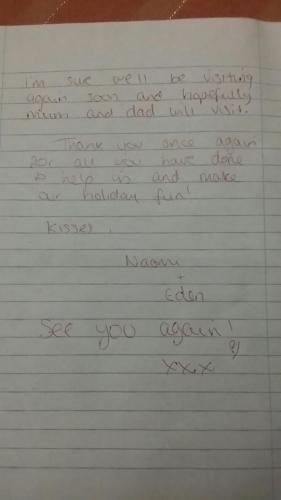 I'm sure we'll be visiting
again soon and hopefully
mum and dad will visit.
Thank you once again
for all you have done
to help us and make
our holiday fun!
Kisses,
Naomi
+
Eden
See you again!
xxx